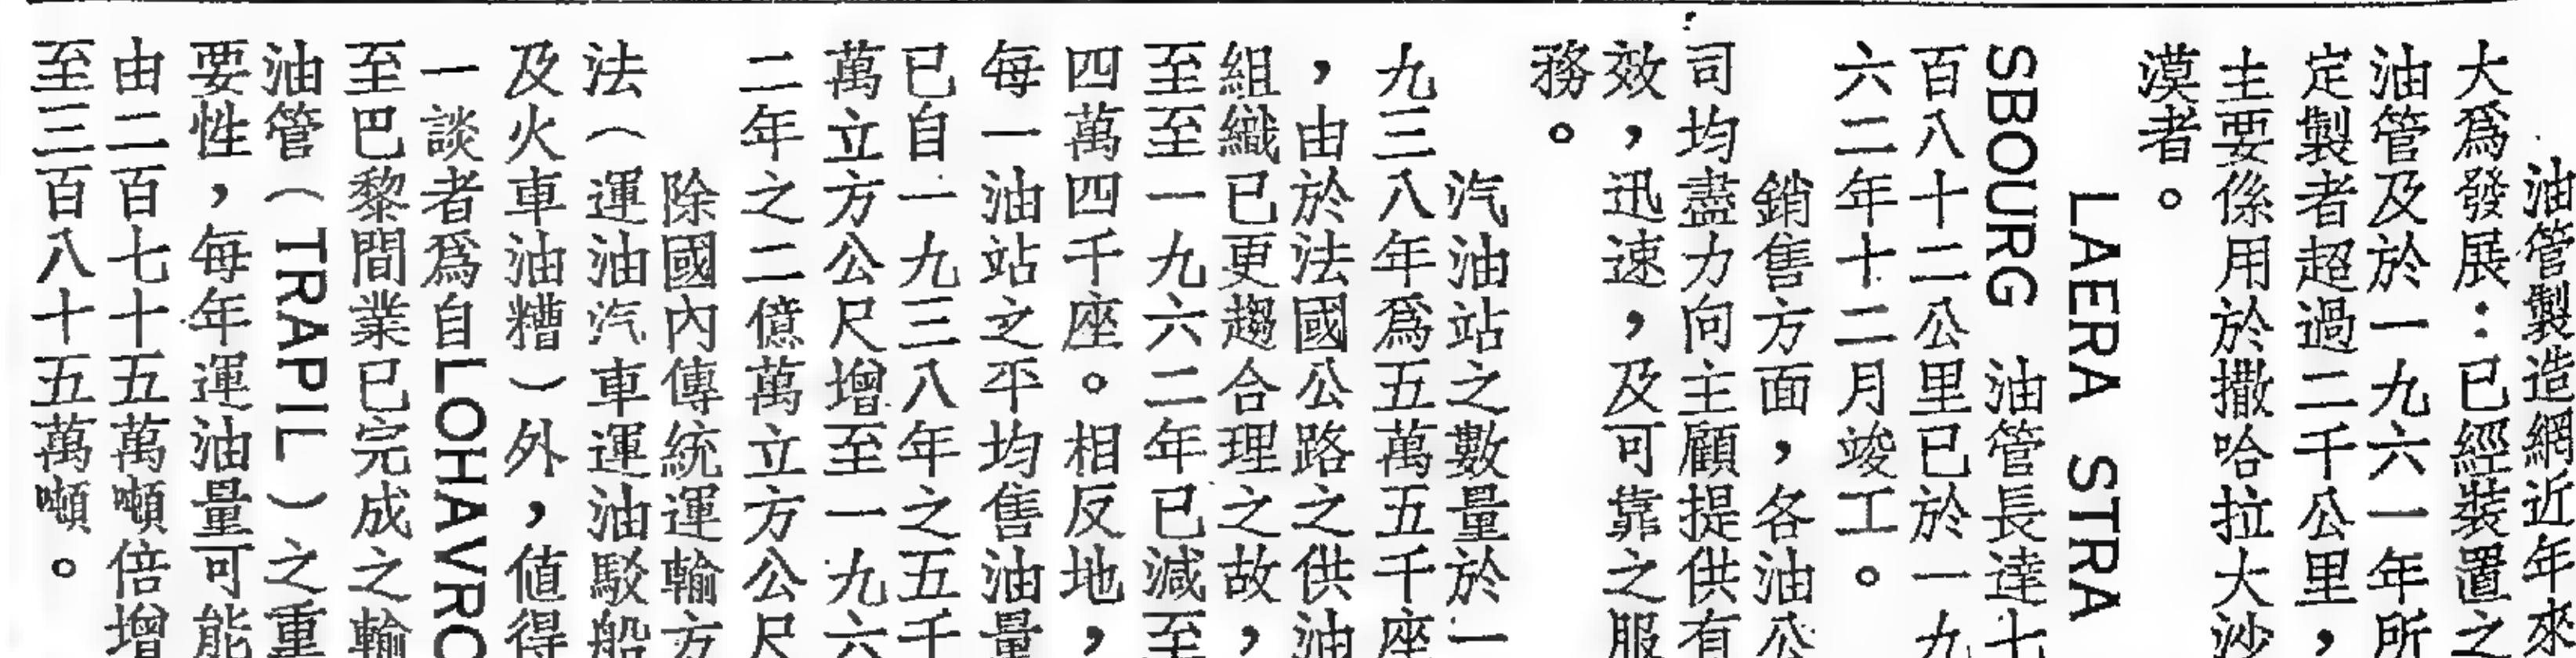 油管製造網近年來
大爲發展：已經裝置之
油管及於一九六一年所
定製者超過二千公里，
主要係用於撒哈拉大沙
漠者。
LAERA STRA
SBOURG 油管長達七
百八十二公里已於一九
六二年十二月竣工。
銷售方面，各油公
司均盡力向主顧提供有
效，迅速，及可靠之服
務。
汽油站之數量於一
九三八年爲五萬五千座
，由於法國公路之供油
組織已更趨合理之故，
至至一九六二年已減至
四萬四千座。相反地，
每一油站之平均售油量
已自一九三八年之五千
萬立方公尺增至一九六
二年之二億萬立方公尺
除國內傳統運輸方
法（運油汽車運油駁船
及火車油糟）外，値得
一談者爲自LOHAVRO
至巴黎間業已完成之輸
油管（TRAPIL）之重
要性，每年運油量可能
由二百七十五萬噸倍增
至三百八十五萬噸。